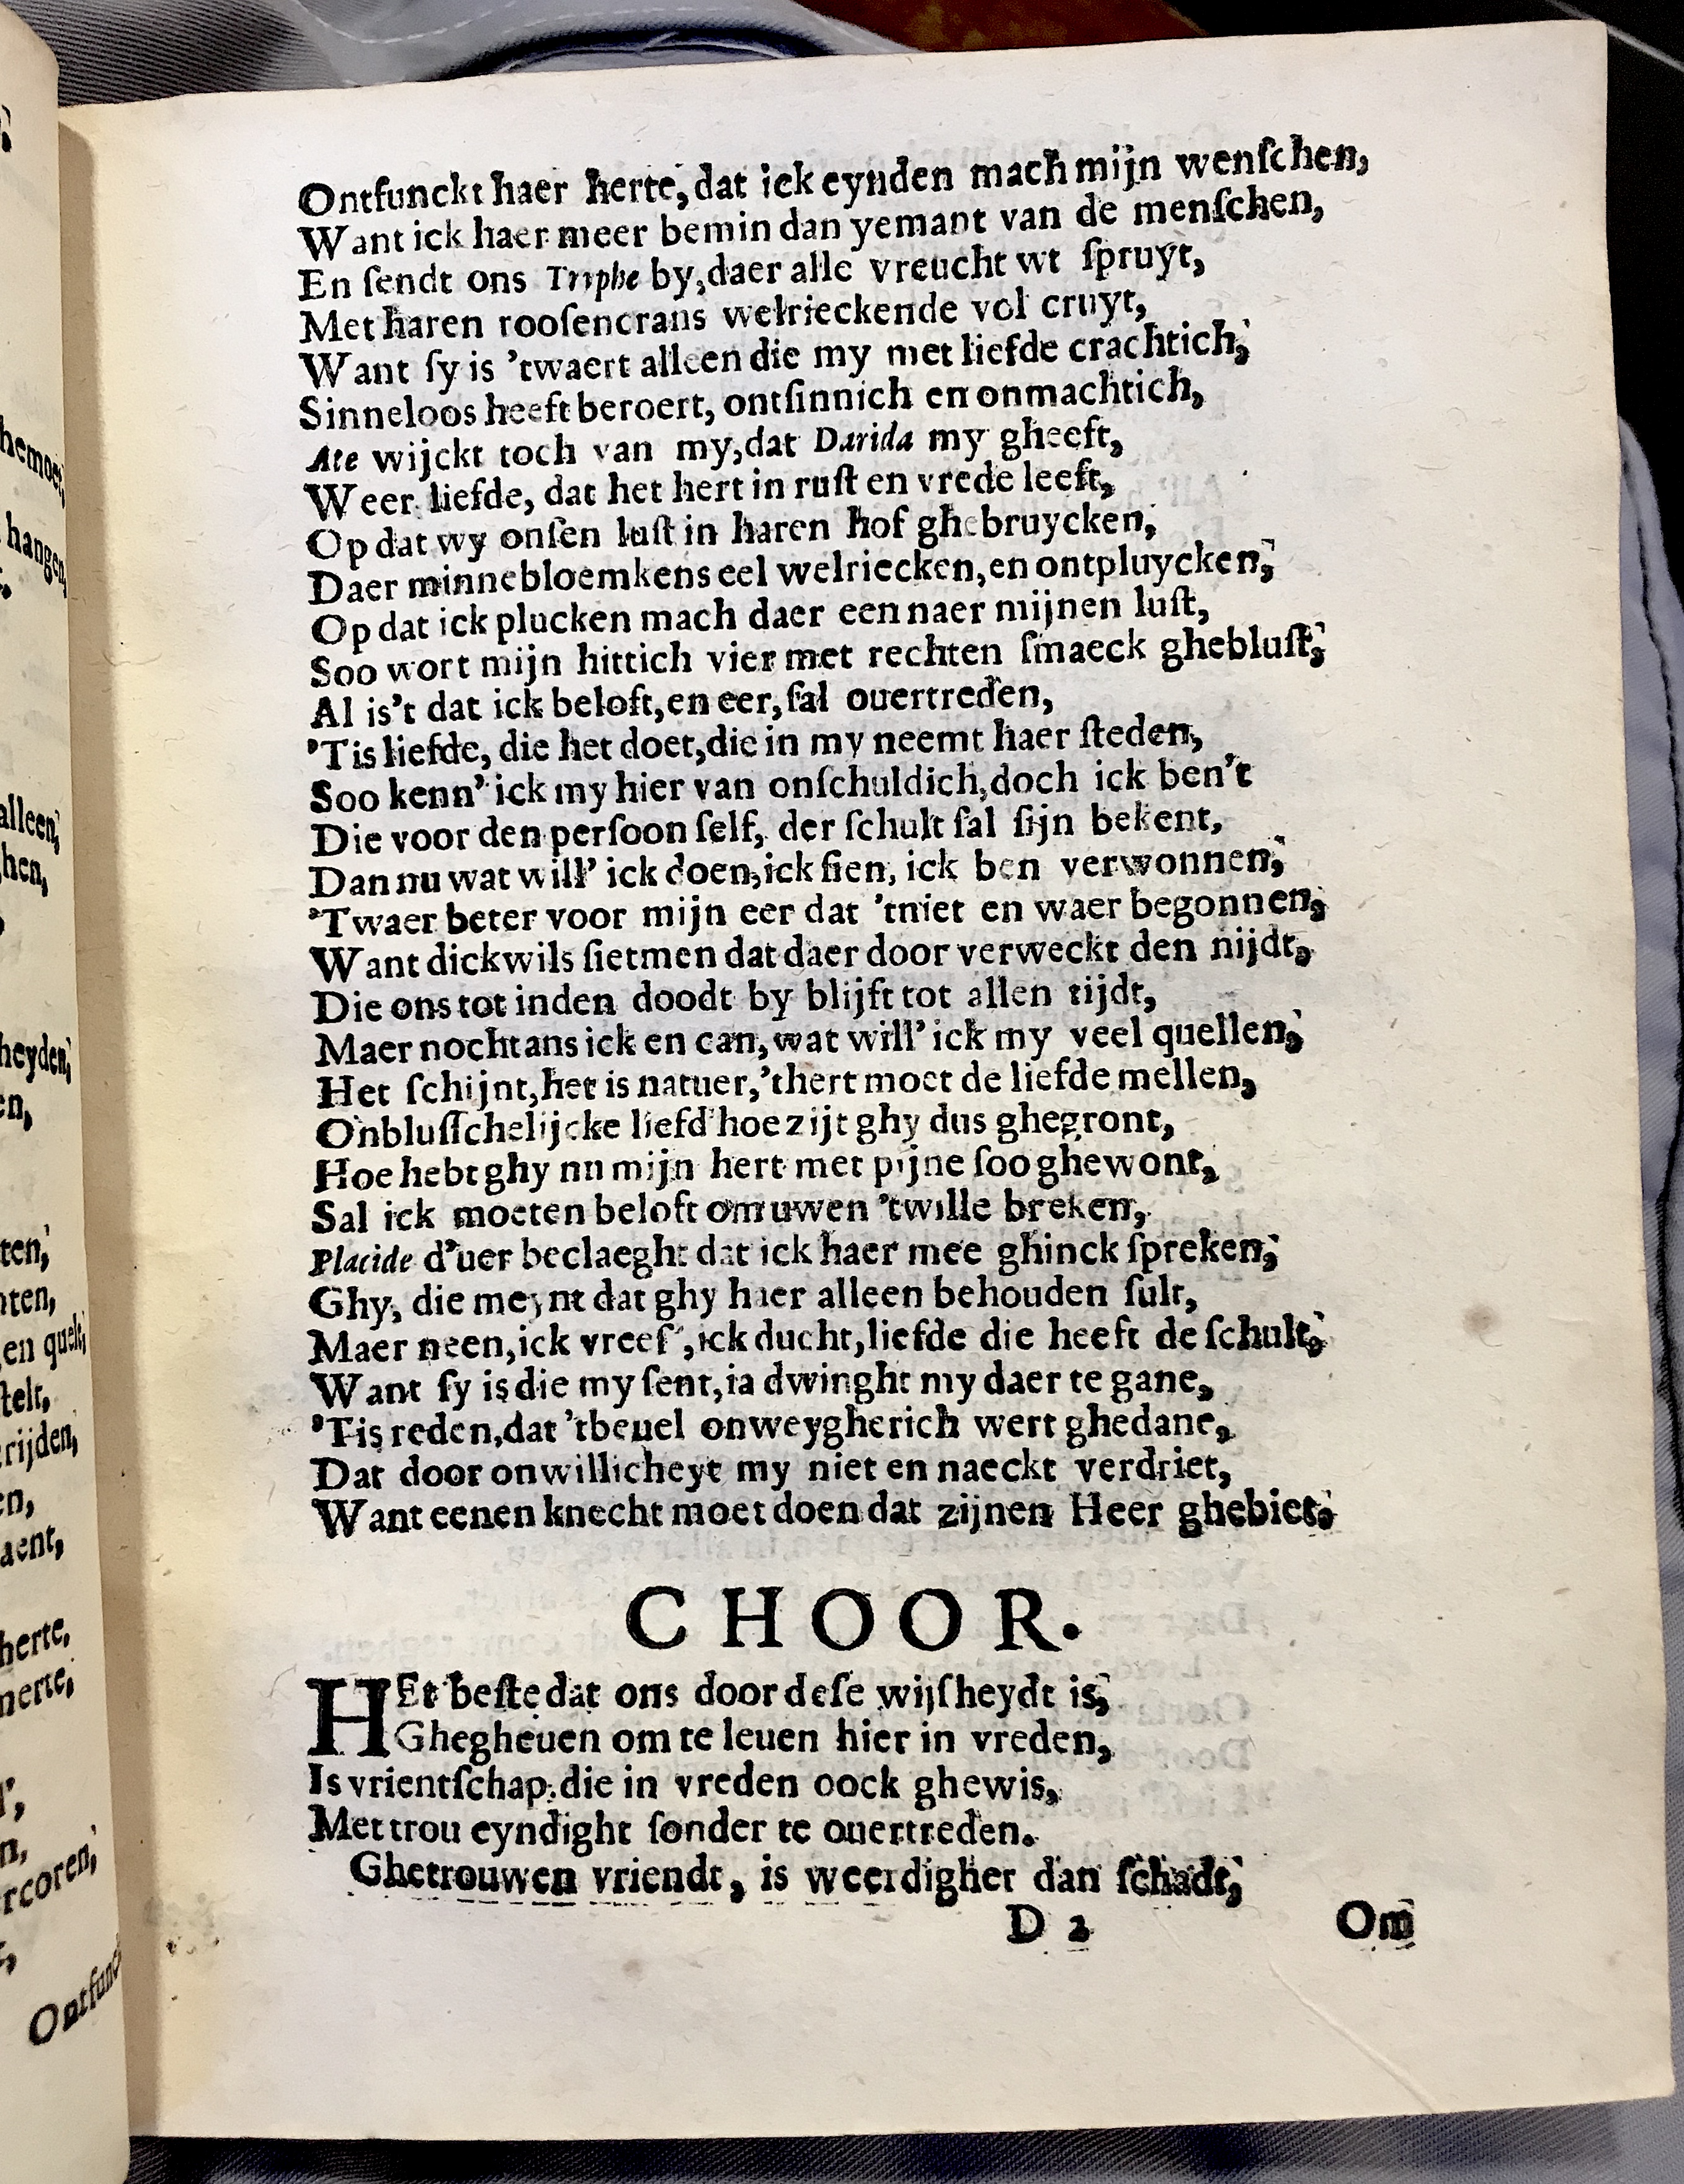 Ontfunckt haer herte, dat ick eynden mach mijn wenſchen,
Want ick haer meer bemin dan yemant van de menſchen,
En ſendt ons Triphe by, daer alle vreucht wt ſpruyt,
Met haren rooſencrans welrieckende vol cruyt,
Want ſy is 'twaert alleen die my met liefde crachtich,
Sinneloos heeft beroert, ontſinnich en onmachtich,
Ate wijckt toch van my, dat Darida my gheeft,
Weer liefde, dat het hert in ruſt en vrede leeft,
Op dat wy onſen luſt in haren hof ghebruycken,
Daer minnebloemkens eel welriecken, en ontpluycken,
Op dat ick plucken mach daer een naer mijnen luſt,
Soo wort mijn hittich vier met rechten ſmaeck ghebluſt,
Al is't dat ick beloft, en eer, ſal ouertreden,
'Tis liefde, die het doet, die in my neemt haer ſteden,
Soo kenn' ick my hier van onſchuldich, doch ick ben't
Die voor den perſoon ſelf, der ſchult ſal ſijn bekent,
Dan nu wat will' ick doen, ick ſien, ick ben verwonnen,
'Twaer beter voor mijn eer dat 'tniet en waer begonnen,
Want dickwils ſietmen dat daer door verweckt den nijdt,
Die ons tot inden doodt by blijft tot allen tijdt,
Maer nochtans ick en can, wat will' ick my veel quellen,
Het ſchijnt, het is natuer, 'thert moet de liefde mellen,
Onbluſſchelijcke liefd' hoe zijt ghy dus ghegront,
Hoe hebt ghy nu mijn hert met pijne ſoo ghewont,
Sal ick moeten beloft om uwen 'twille breken,
Placide d'uer beclaeght dat ick haer mee ghinck ſpreken,
Ghy, die meynt dat ghy haer alleen behouden ſult,
Maer neen, ick vreeſ', ick ducht, liefde die heeft de ſchult,
Want ſy is die my ſent, ia dwinght my daer te gane,
'Tis reden, dat 'tbeuel onweygherich wert ghedane,
Dat door onwillicheyt my niet en naeckt verdriet,
Want eenen knecht moet doen dat zijnen Heer ghebiet,
CHOOR.
HEt beſte dat ons door deſe wijſheydt is,
Ghegheuen om te leuen hier in vreden,
Is vrientſchap, die in vreden oock ghewis,
Met trou eyndight ſonder te ouertreden.
Ghetrouwen vriendt, is weerdigher dan ſchadt,
D 2 Om